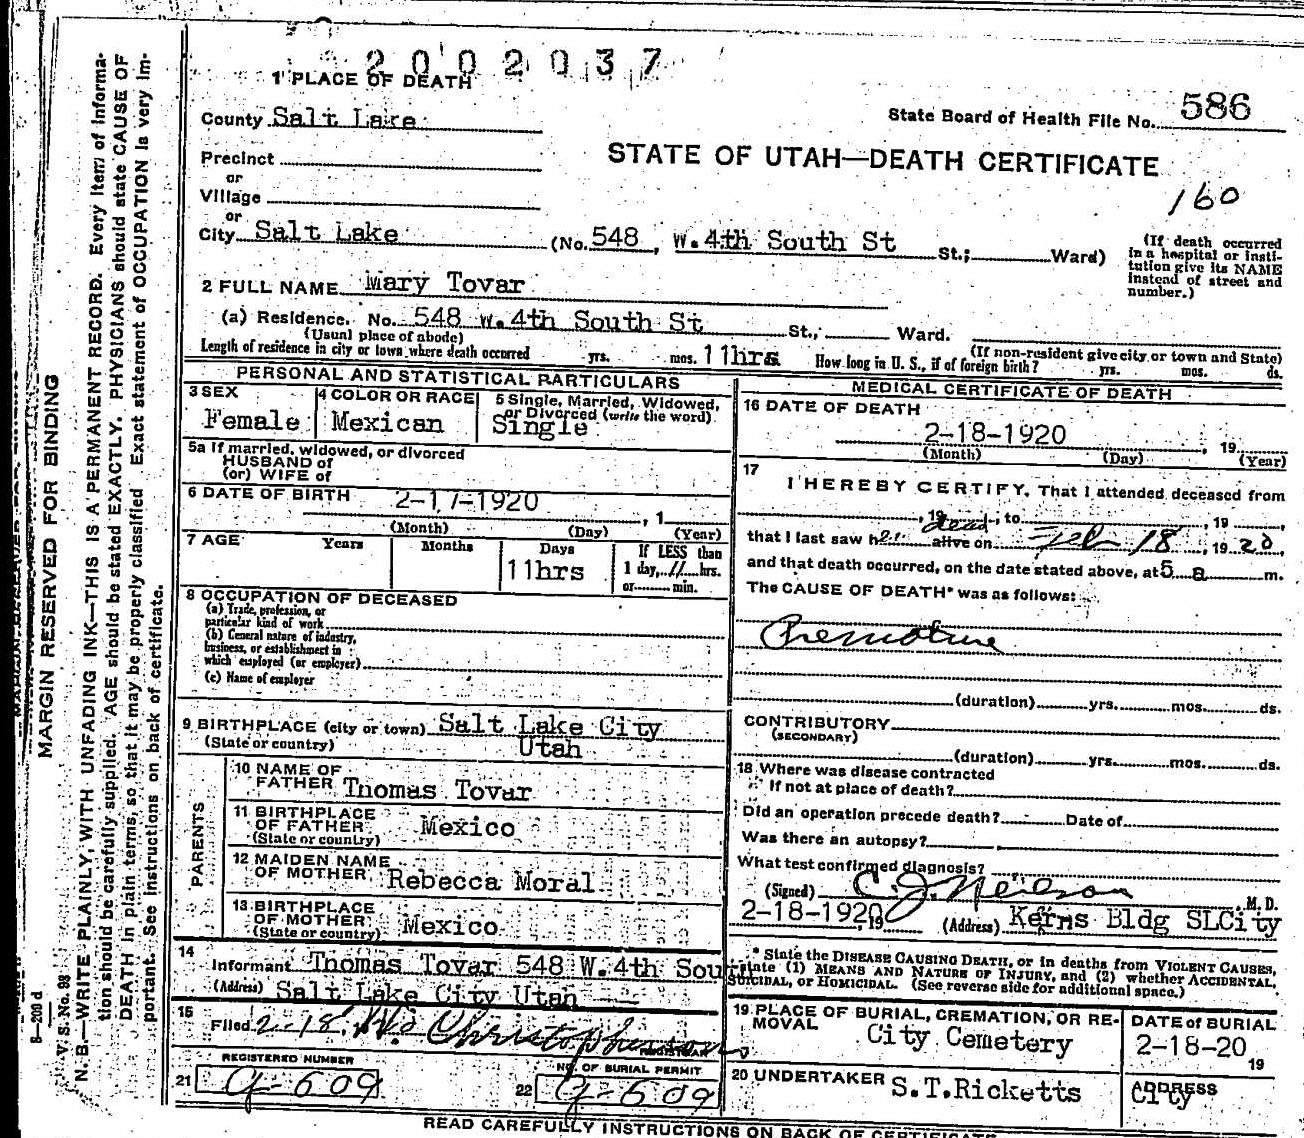 2002037
1 PLACE OF DEATH
County Salt Lake
State Board of Health File No. 586
Precinct
or
Village
or
STATE OF UTAH—DEATH CERTIFICATE
160
City Salt Lake (No. 548, W. 4th South St St.; Ward)
(If death occurred
in a hospital or insti-
tution give its NAME
instead of street and
number.)
2 FULL NAME Mary Tovar
(a) Residence. No. 548 W. 4th South St St., Ward.
(Usual place of abode)
(If non-resident give city or town and State)
Length of residence in city or town where death occurred yrs. mos. 11hrs How long in U. S., if of foreign birth? yrs. mos. ds.
PERSONAL AND STATISTICAL PARTICULARS
3 SEX
Female
4 COLOR OR RACE
Mexican
5 Single, Married, Widowed,
or Divorced (write the word)
Single
5a If married, widowed, or divorced
HUSBAND of
(or) WIFE of
6 DATE OF BIRTH 2-17-1920 , 1
(Month) (Day) (Year)
7 AGE Years Months Days
11hrs
If LESS than
1 day, 11 hrs.
or min.
8 OCCUPATION OF DECEASED
(a) Trade, profession, or
particular kind of work
(b) General nature of industry,
business, or establishment in
which employed (or employer)
(c) Name of employer
9 BIRTHPLACE (city or town) Salt Lake City
(State or country) Utah
PARENTS
10 NAME OF
FATHER Thomas Tovar
11 BIRTHPLACE
OF FATHER Mexico
(State or country)
12 MAIDEN NAME
OF MOTHER Rebecca Moral
13 BIRTHPLACE
OF MOTHER Mexico
(State or country)
14
Informant Thomas Tovar 548 W. 4th South
(Address) Salt Lake City Utah
15
Filed 2-18. Christopherson
REGISTRAR
REGISTERED NUMBER
21 G-609
NO. OF BURIAL PERMIT
22 G-609
MEDICAL CERTIFICATE OF DEATH
16 DATE OF DEATH
2-18-1920 , 19
(Month) (Day) (Year)
17
I HEREBY CERTIFY, That I attended deceased from
, 19 , to , 19 ,
that I last saw her dead alive on Feb 18, 1920
and that death occurred, on the date stated above, at 5 a m.
The CAUSE OF DEATH* was as follows:
Premature
(duration) yrs. mos. ds.
CONTRIBUTORY
(SECONDARY)
(duration) yrs. mos. ds.
18 Where was disease contracted
If not at place of death?
Did an operation precede death? Date of
Was there an autopsy?
What test confirmed diagnosis?
(Signed) C. J. Neilson, M. D.
2-18-1920, 19 (Address) Kerns Bldg SLCity
* State the DISEASE CAUSING DEATH, or in deaths from VIOLENT CAUSES,
state (1) MEANS AND NATURE OF INJURY, and (2) whether ACCIDENTAL,
SUICIDAL, or HOMICIDAL. (See reverse side for additional space.)
19 PLACE OF BURIAL, CREMATION, OR RE-
MOVAL City Cemetery
DATE of BURIAL
2-18-20 19
20 UNDERTAKER S.T.Ricketts
ADDRESS
City
READ CAREFULLY INSTRUCTIONS ON BACK OF CERTIFICATE
MARGIN RESERVED FOR BINDING
N. B.—WRITE PLAINLY, WITH UNFADING INK—THIS IS A PERMANENT RECORD. Every item of informa-
tion should be carefully supplied. AGE should be stated EXACTLY. PHYSICIANS should state CAUSE OF
DEATH in plain terms, so that it may be properly classified. Exact statement of OCCUPATION is very im-
portant. See instructions on back of certificate.
V. S. No. 98